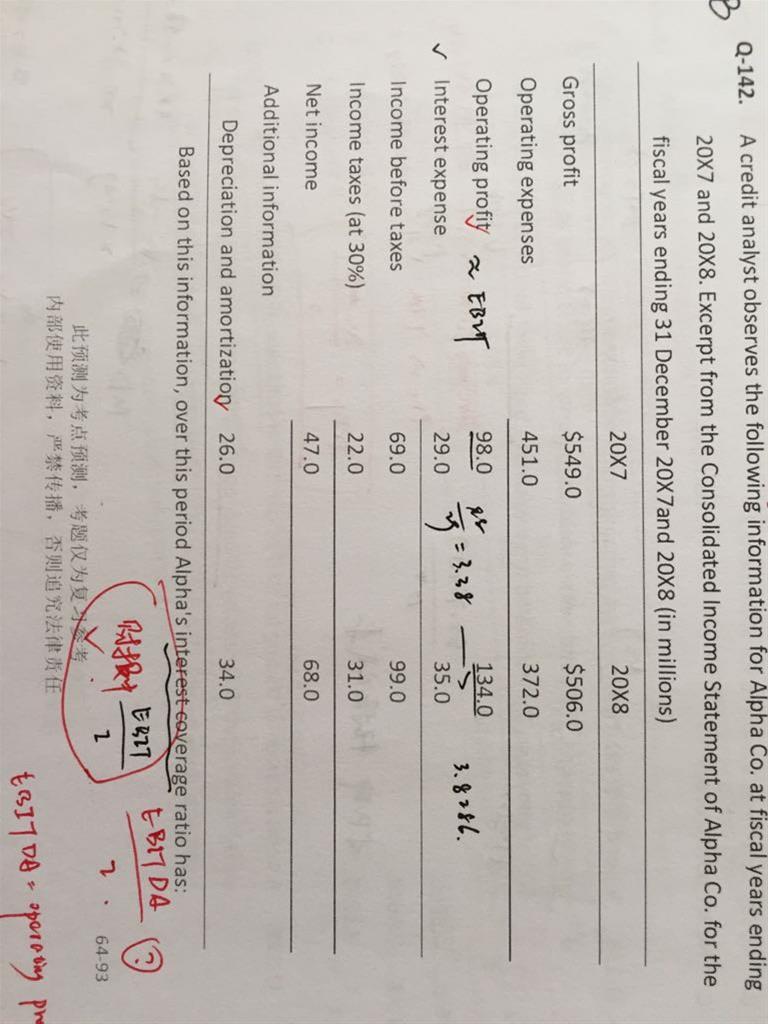 B
Q-142. A credit analyst observes the following information for Alpha Co. at fiscal years ending
20X7 and 20X8. Excerpt from the Consolidated Income Statement of Alpha Co. for the
fiscal years ending 31 December 20X7and 20X8 (in millions)
20X7 20X8
Gross profit $549.0 $506.0
Operating expenses 451.0 372.0
Operating profit ≈ EBIT 98.0 134.0
✓ Interest expense 29.0 98/29 = 3.38 → 35.0 3.8286.
Income before taxes 69.0 99.0
Income taxes (at 30%) 22.0 31.0
Net income 47.0 68.0
Additional information
Depreciation and amortization 26.0 34.0
Based on this information, over this period Alpha's interest coverage ratio has:
财报 EBIT EBITDA ?
此预测为考点预测，考题仅为复习参考 64-93
内部使用资料，严禁传播，否则追究法律责任
EBITDA = operating